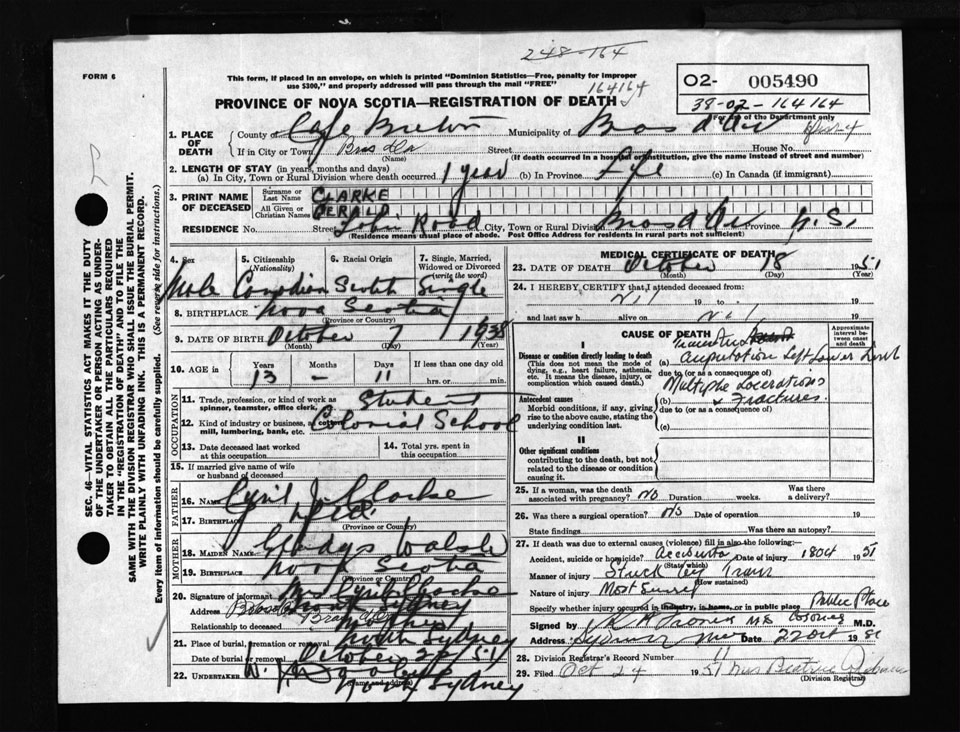 248-164
FORM 6
This form, if placed in an envelope, on which is printed "Dominion Statistics—Free, penalty for improper
use $300," and properly addressed will pass through the mail "FREE"
164164
PROVINCE OF NOVA SCOTIA—REGISTRATION OF DEATH
O2- 005490
38-02-164164
For use of the Department only
1. PLACE OF DEATH
County of Cape Breton Municipality of Bras d'Or
If in City or Town Bras d'Or Street House No.
(Name) (If death occurred in a hospital or institution, give the name instead of street and number)
2. LENGTH OF STAY (in years, months and days)
(a) In City, Town or Rural Division where death occurred. 1 year (b) In Province Life (c) In Canada (if immigrant)
3. PRINT NAME OF DECEASED
Surname or Last Name CLARKE
All Given or Christian Names GERALD
RESIDENCE No. Street Road City, Town or Rural Division Bras d'Or Province N.S.
(Residence means usual place of abode. Post Office Address for residents in rural parts not sufficient)
4. Sex Male
5. Citizenship (Nationality) Canadian
6. Racial Origin Scotch
7. Single, Married, Widowed or Divorced (write the word) Single
8. BIRTHPLACE Nova Scotia
(Province or Country)
9. DATE OF BIRTH October 7 1938
(Month) (Day) (Year)
10. AGE in Years Months Days If less than one day old
13 – 11 hrs. or min.
OCCUPATION
11. Trade, profession, or kind of work as spinner, teamster, office clerk, Student
12. Kind of industry or business, as cotton mill, lumbering, bank, etc. Colonial School
13. Date deceased last worked at this occupation
14. Total yrs. spent in this occupation
15. If married give name of wife or husband of deceased
FATHER
16. Name Cyril J. Clarke
17. Birthplace
(Province or Country)
MOTHER
18. Maiden Name Gladys Walsh
19. Birthplace Nova Scotia
(Province or Country)
20. Signature of informant Mrs Cyril Clarke
Address North Sydney
Relationship to deceased
21. Place of burial, cremation or removal North Sydney
Date of burial or removal October 22 51
22. UNDERTAKER
North Sydney
(Name and address)
MEDICAL CERTIFICATE OF DEATH
23. DATE OF DEATH October 18 1951
(Month) (Day) (Year)
24. I HEREBY CERTIFY that I attended deceased from:
Nil 19 to 19
and last saw h alive on Nil 19
CAUSE OF DEATH
Approximate interval between onset and death
I
Disease or condition directly leading to death
(This does not mean the mode of dying, e.g., heart failure, asthenia, etc. It means the disease, injury, or complication which caused death.)
(a) amputation Left Lower Limb
due to (or as a consequence of)
Antecedent causes
Morbid conditions, if any, giving rise to the above cause, stating the underlying condition last.
(b) Multiple Lacerations & Fractures.
due to (or as a consequence of)
(c)
II
Other significant conditions
contributing to the death, but not related to the disease or condition causing it.
25. If a woman, was the death associated with pregnancy? No Duration weeks. Was there a delivery?
26. Was there a surgical operation? No Date of operation 19
State findings Was there an autopsy?
27. If death was due to external causes (violence) fill in also the following:—
Accident, suicide or homicide? Accident Date of injury 18 Oct 1951
(State which)
Manner of injury Struck by Train
(How sustained)
Nature of injury
Specify whether injury occurred in industry, in home, or in public place Public Place
Signed by M.D.
Address Sydney Date 22 Oct 19 51
28. Division Registrar's Record Number 11
29. Filed Oct 24 1951 Mrs Beatrice
(Division Registrar)
SEC. 46—VITAL STATISTICS ACT MAKES IT THE DUTY
OF THE UNDERTAKER OR PERSON ACTING AS UNDER-
TAKER TO OBTAIN ALL THE PARTICULARS REQUIRED
IN THE "REGISTRATION OF DEATH" AND TO FILE THE
SAME WITH THE DIVISION REGISTRAR WHO SHALL ISSUE THE BURIAL PERMIT.
WRITE PLAINLY WITH UNFADING INK. THIS IS A PERMANENT RECORD.
Every item of information should be carefully supplied. (See reverse side for instructions.)